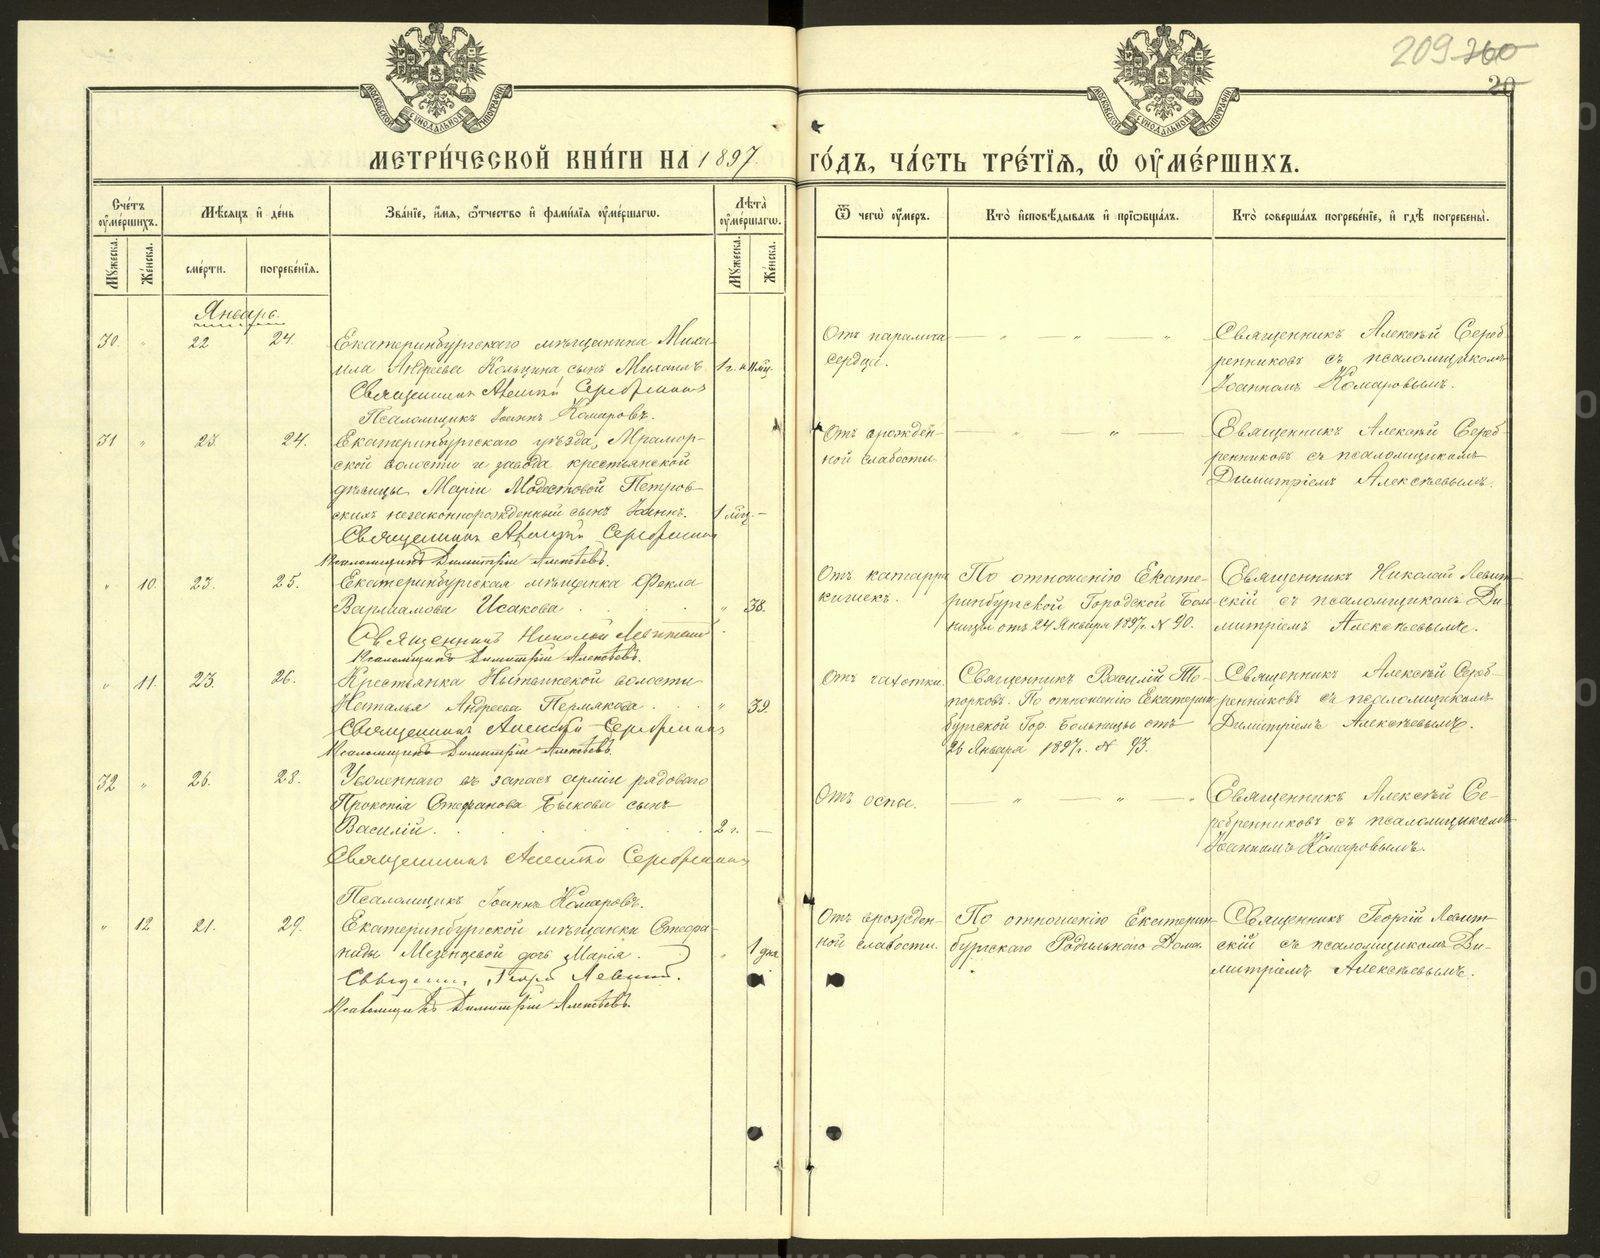 209 360
20
МОСКОВСКОЙ СѴНОДАЛЬНОЙ ТИПОГРАФІИ
МОСКОВСКОЙ СѴНОДАЛЬНОЙ ТИПОГРАФІИ
МЕТРИ́ЧЕСКОЙ КНИ́ГИ НА 1897 ГО́ДЪ, ЧА́СТЬ ТРЕ́ТІѦ, Ѡ҆ ОУ҆МЕ́РШИХЪ.
Сче́тъ оу҆ме́ршихъ.
Мѣ́сяцъ и҆ де́нь
Зва́нїе, и҆́мѧ, ѻ҆́тчество и҆ фами́лїѧ оу҆ме́ршагѡ.
Лѣ́та оу҆ме́ршагѡ.
Ѿ чегѡ̀ оу҆́меръ.
Кто̀ и҆сповѣ́дывалъ и҆ прїѡбща́лъ.
Кто̀ соверша́лъ погребе́нїе, и҆ гдѣ̀ погребены̀.
Мꙋ́жеска.
Же́нска.
сме́рти.
погребе́нїѧ.
Мꙋ́жеска.
Же́нска.
Январь.
30. " 22 24. Екатеринбургскаго мѣщанина Миха-
ила Андреева Кольцина сынъ Михаилъ 1 г. и 11 мц.
Священникъ Алексій Серебренников
Псаломщикъ Іоаннъ Комаровъ.
Отъ паралича
сердца.
— " — " — "
Священникъ Алексѣй Сереб-
ренниковъ съ псаломщикомъ
Іоанномъ Комаровымъ.
31 " 23. 24. Екатеринбургскаго уѣзда, Мрамор-
ской волости и завода крестьянской
дѣвицы Маріи Модестовой Петров-
скихъ незаконнорожденный сынъ Іоаннъ. 1 мѣц. —
Священникъ Алексій Серебренников
Псаломщикъ Димитрій Алексѣевъ.
Отъ врожден-
ной слабости
— " — " —
Священникъ Алексѣй Сереб-
ренниковъ съ псаломщикомъ
Димитріемъ Алексѣевымъ.
" 10. 23. 25. Екатеринбургская мѣщанка Фекла
Варлаамова Исакова . . . . " 38.
Священникъ Николай Левитскій
Псаломщикъ Димитрій Алексѣевъ.
Отъ катарра
кишекъ.
По отношенію Екате-
ринбургской Городской Боль-
ницы отъ 24 Января 1897 г. № 90.
Священникъ Николай Левит-
скій съ псаломщикомъ Ди-
митріемъ Алексѣевымъ.
" 11. 23. 26. Крестьянка Нытвинской волости
Наталья Андреева Пермякова . . " 39.
Священникъ Алексій Серебренников
Псаломщикъ Димитрій Алексѣевъ.
Отъ чахотки.
Священникъ Василій То-
порковъ. По отношенію Екатерин-
бургской Гор. Больницы отъ
26 Января 1897 г. № 93.
Священникъ Алексѣй Сереб-
ренниковъ съ псаломщикомъ
Димитріемъ Алексѣевымъ.
32 " 26. 28. Уволеннаго въ запасъ арміи рядоваго
Прокопія Стефанова Быкова сынъ
Василій. . . . . . . 2 г. —
Священникъ Алексій Серебренников
Псаломщикъ Іоаннъ Комаровъ.
Отъ оспы.
— " — " — "
Священникъ Алексѣй Се-
ребренниковъ съ псаломщикомъ
Іоанномъ Комаровымъ.
" 12 21. 29. Екатеринбургской мѣщанки Стефа-
ниды Мезенцевой дочь Марія. " 1 дня.
Священник Георгій Левитскій.
Псаломщикъ Димитрій Алексѣевъ.
Отъ врожден-
ной слабости.
По отношенію Екатерин-
бургскаго Родильнаго Дома.
Священникъ Георгій Левит-
скій съ псаломщикомъ Ди-
митріемъ Алексѣевымъ.